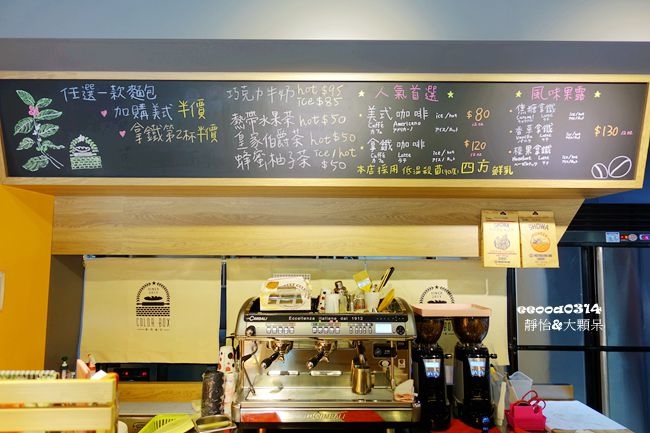 任選一款麵包
加購美式 半價
拿鐵第2杯半價
巧克力牛奶 hot $95
ice $85
熱帶水果茶 hot $50
皇家伯爵茶 hot $50
蜂蜜柚子茶 ice/hot $50
★ 人氣首選 ★
美式咖啡 ice/hot $80
Caffè Americano 12oz.
拿鐵咖啡 ice/hot $120
Caffè Latte 12oz.
本店採用低溫殺菌 四方鮮乳
★ 風味果露 ★
焦糖拿鐵 ice/hot
Caramel Latte
香草拿鐵 ice/hot $130
Vanilla Latte 12oz.
榛果拿鐵 ice/hot
Hazelnut Latte
SHOWA
SHOWA
SINCE 2013
COLOR BOX
CIMBALI
Eccellenza italiana dal 1912
CIMBALI
eeooa0314
靜怡&大顆呆